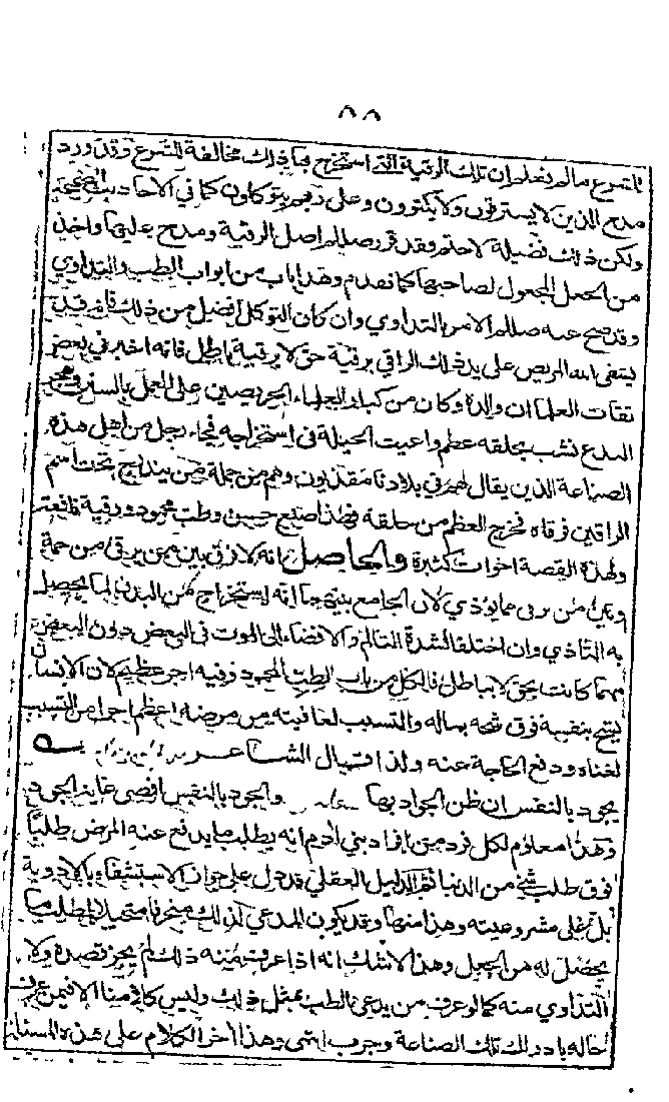 ٨٨
للشرع ما لم يعلم ان تلك الرقية التي استخرج بها ذلك مخالفة للشرع وقد ورد
مدح الذين لا يسترقون ولا يكتوون وعلى ربهم يتوكلون كما في الاحاديث الصحيحة
ولكن ذلك فضيلة لا حتم وقد قرر صللم اصل الرقية ومدح عليها واخذ
من الجعل المجعول لصاحبها كما تقدم وهذا باب من ابواب الطب والتداوي
وقد صح عنه صللم الامر بالتداوي وان كان التوكل افضل من ذلك فانه قد
يشفي الله المريض على يد ذلك الراقي برقية حق لا برقية باطل فانه اخبرني بعض
ثقات العلما ان والده وكان من كبار العلماء الحريصين على العمل بالسنن
البدع نشب بحلقه عظم واعيت الحيلة في استخراجه فجاء رجل من اهل هذه
الصناعة الذين يقال لهم في بلادنا وهم من جملة من يندرج تحت اسم
الراقين فرقاه فخرج العظم من حلقه فهذا صنيع حسن وطب محمود ورقية نافعة
ولهذه القصة اخوات كثيرة والحاصل انه لا فرق بين من يرقي من حمة
وبين من يرقي مما يوذي لان الجامع بينهما انه استخراج من البدن لما يحصل
به التاذي وان اختلفا لشدة التالم والافضاء الى الموت في البعض دون البعض
مهما كانت بحق لا بباطل فالكل من باب الطب المحمود وفيه اجر عظيم لان الانسان
يشح بنفسه فوق شحه بماله والتسبب لعافيته من مرضه اعظم اجرا من التسبب
لغناه ودفع الحاجة عنه ولذا قال الشاعر
يجود بالنفس ان ظن الجواد بها والجود بالنفس اقصى غاية الجود
وهذا معلوم لكل فرد من افراد بني ادم انه يطلب ما يدفع عنه المرض طلبا
فوق طلب شيء من الدنيا فالدليل العقلي قد دل على جواز الاستشفاء بالادوية
بل على مشروعيته وهذا منها وقد يكون المدعي لذلك مخرفا متحيلا لمطلب ما
يحصل له من الجعل وهذا لا شك انه اذا عرف منه ذلك لم يجز قصده ولا
التداوي منه كما لو عرف من يدعي الطب بمثل ذلك وليس كلامنا الا فيمن عرف
حاله بادراك تلك الصناعة وجرب انتهى وهذا آخر الكلام على هذه المسئلة